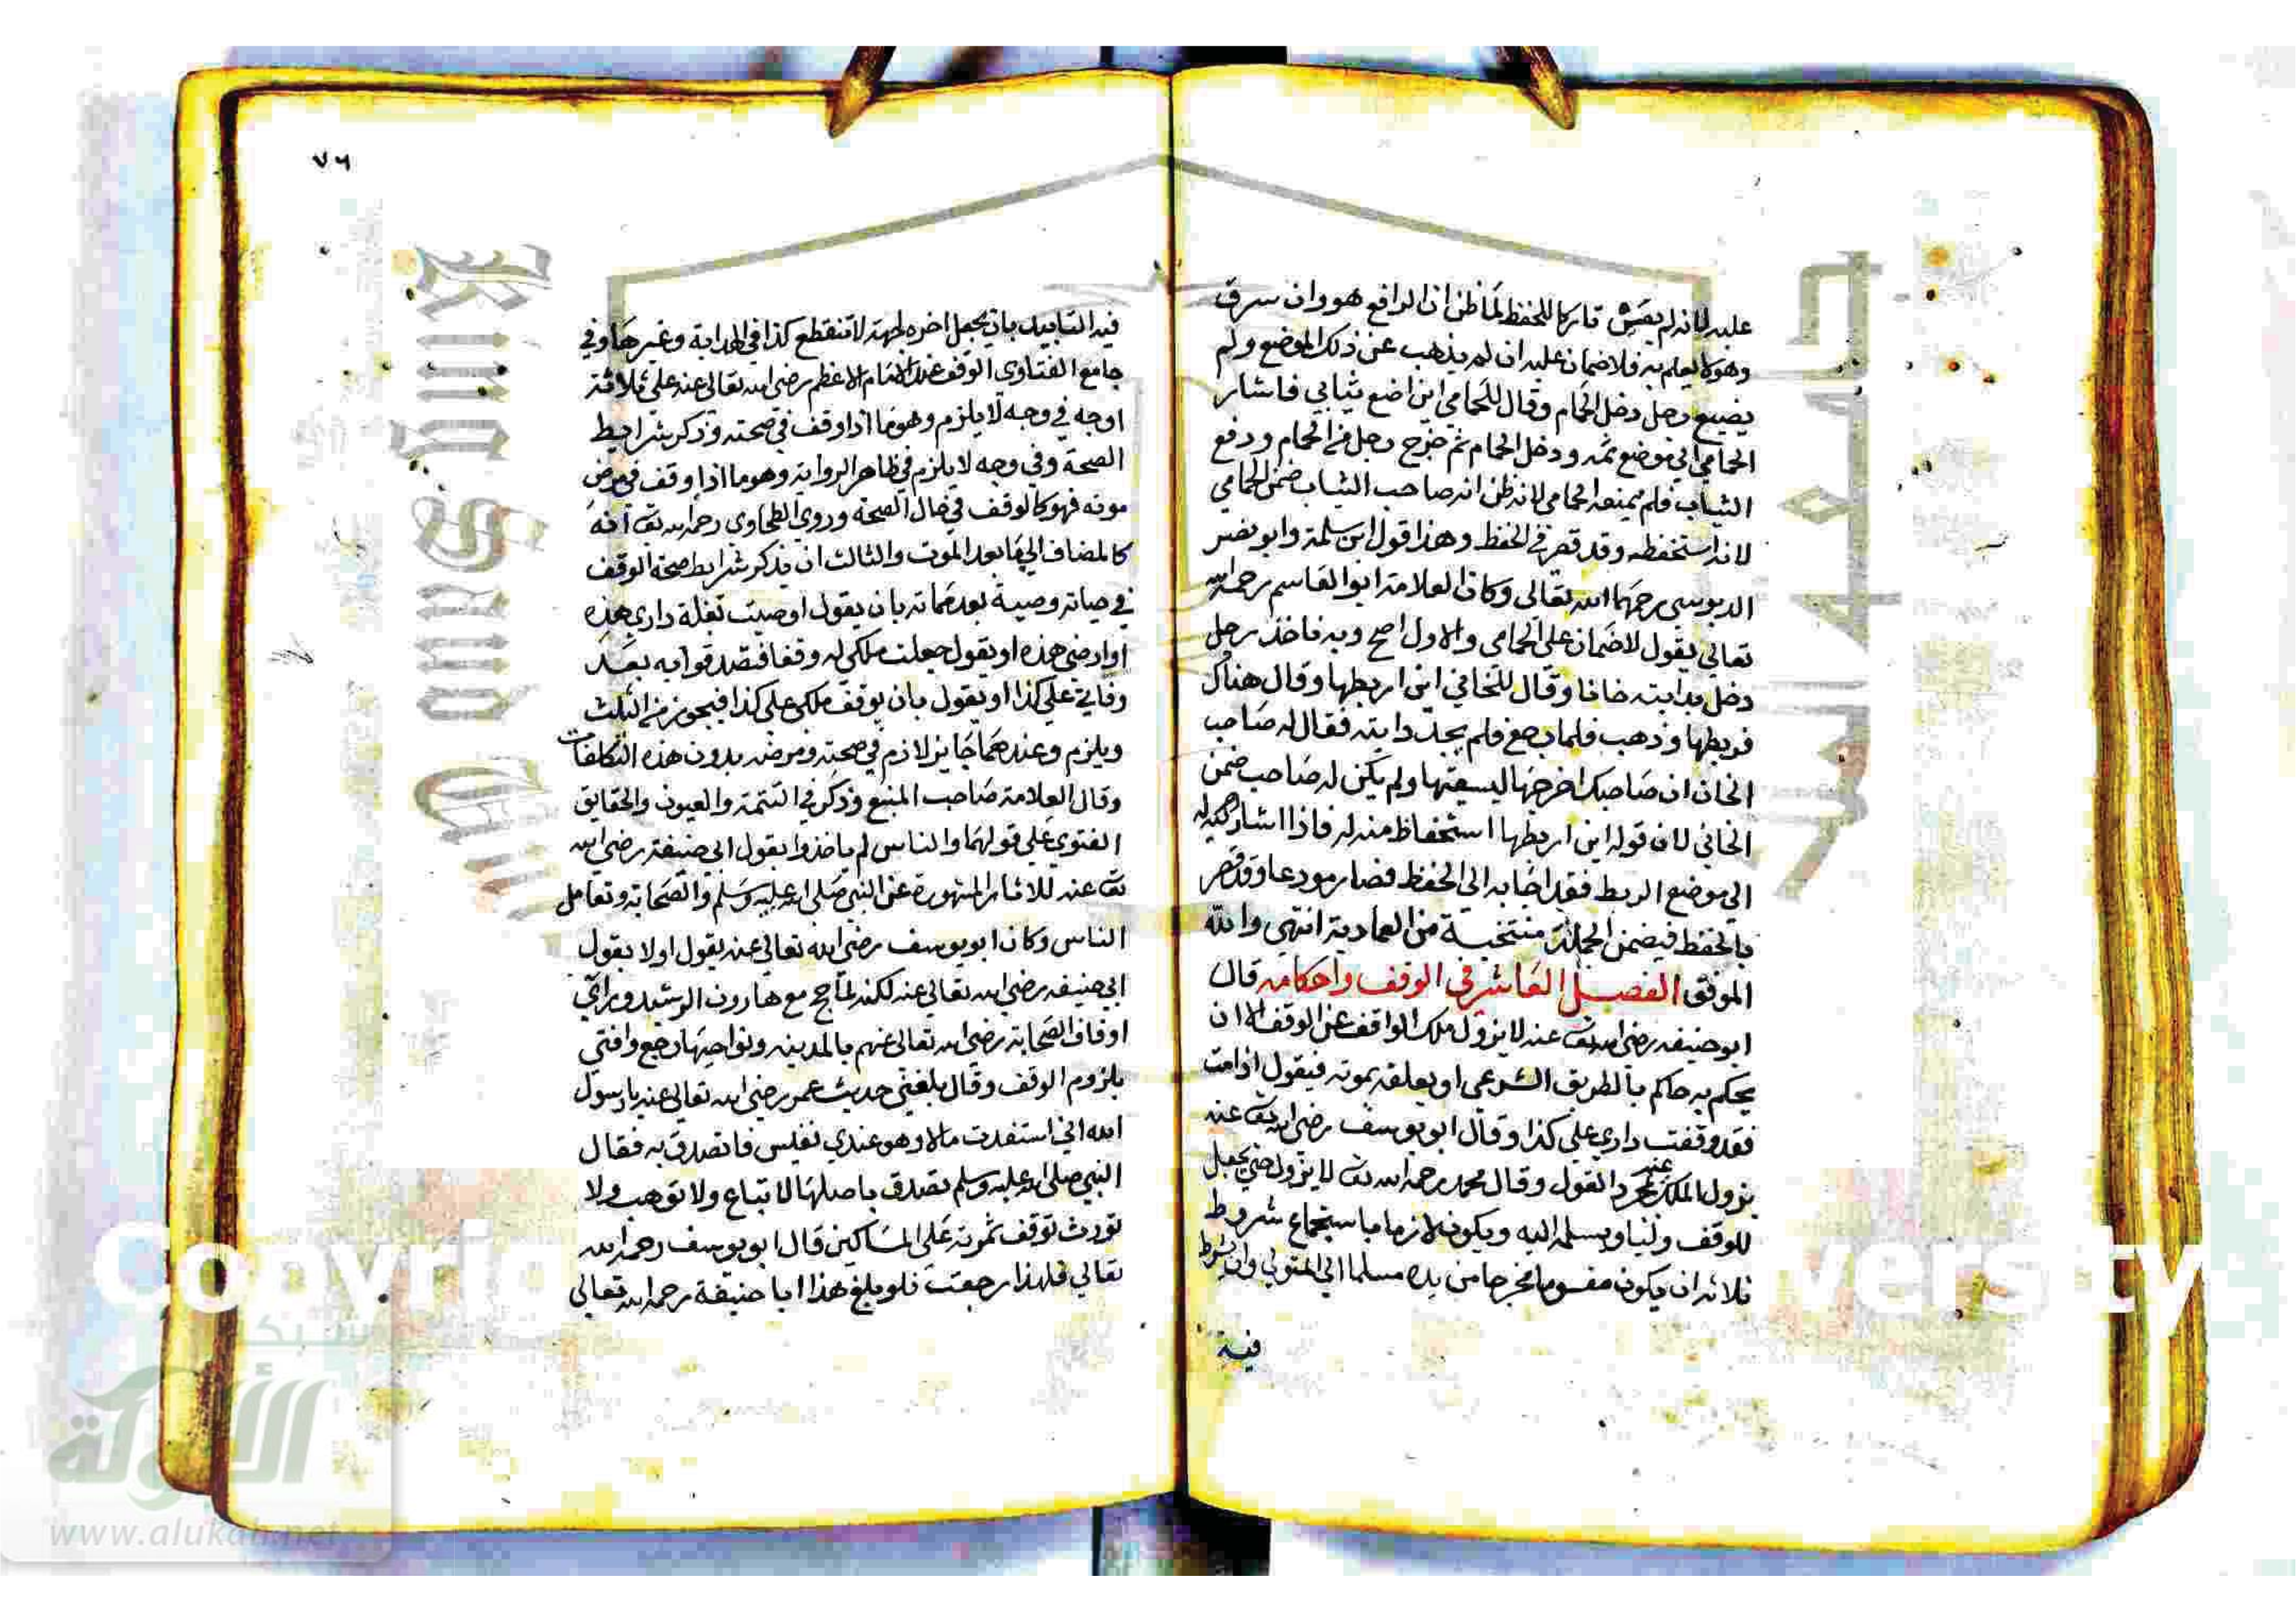 عليه لانه لم يقش تاركا للحفظ لما ظن ان الرافع هو وان سرق
وهو لا يعلم به فلا ضمان عليه ان لم يذهب عن ذلك الموضع ولم
يضيع رجل دخل الحمام وقال للحمامي اين اضع ثيابي فاشار
الحمامي الى موضع ثمه ودخل الحمام ثم خرج رجل من الحمام ودفع
الثياب فلم يمنعه الحمامي لانه ظن انه صاحب الثياب ضمن الحمامي
لانه استحفظه وقد قصر في الحفظ وهذا قول ابن سلمة وابو نصر
الدبوسي رحمهما الله تعالى وكان العلامة ابو القاسم رحمه الله
تعالى يقول لا ضمان على الحمامي والاول اصح وبه ناخذ رجل
دخل بدابته خانا وقال للخاني اين اربطها وقال هناك
فربطها وذهب فلما رجع فلم يجد دابته فقال له صاحب
الخان ان صاحبك اخرجها ليسقيها ولم يكن له صاحب ضمن
الخاني لان قوله اين اربطها استحفاظ منه له فاذا اشار
الى موضع الربط فقد اجابه الى الحفظ فصار مودعا وقد قصر
بالحفظ فيضمن الجملة منتخبة من العمادية انتهى والله
الموفق الفصل العاشر في الوقف واحكامه قال
ابو حنيفه رضي الله تع عنه لا يزول ملك الواقف عن الوقف الا ان
يحكم به حاكم بالطريق الشرعي او يعلقه بموته فيقول اذا مت
فقد وقفت داري على كذا وقال ابو يوسف رضي الله تع عنه
يزول الملك عنه بمجرد القول وقال محمد رحمه الله تع لا يزول حتى يجعل
للوقف وليا ويسلمه اليه ويكون لازما باستجماع شروط
ثلاثه ان يكون مقسوما مخرجا من يده مسلما الى المتولي وان يشرط
فيه
٧٦
فيه التابيد بان يجعل اخره لجهة لا تنقطع كذا في الهداية وغيرها وفي
جامع الفتاوى الوقف عند الامام الاعظم رضي الله تعالى عنه على ثلاثة
اوجه في وجه لا يلزم وهو ما اذا وقف في صحته وذكر شرايط
الصحة وفي وجه لا يلزم في ظاهر الرواية وهو ما اذا وقف في مرض
موته فهو كالوقف في حال الصحة وروى الطحاوي رحمه الله تع انه
كالمضاف الى ما بعد الموت والثالث ان يذكر شرايط صحة الوقف
في حياته وصية بعد مماته بان يقول اوصيت بغلة داري هذه
او ارضي هذه او يقول جعلت ملكي له وقفا فتصدقوا به بعد
وفاتي على كذا او يقول بان يوقف ملكي على كذا فيجوز من الثلث
ويلزم وعندهما جايز لازم في صحته ومرضه بدون هذه التكلفات
وقال العلامة صاحب المنبع وذكر في التتمة والعيون والحقايق
الفتوى على قولهما والناس لم ياخذوا بقول ابي حنيفة رضي الله
تع عنه للاثار المشهورة عن النبي صلى الله عليه وسلم والصحابة وتعامل
الناس وكان ابو يوسف رضي الله تعالى عنه يقول اولا بقول
ابي حنيفه رضي الله تعالى عنه لكنه لما حج مع هارون الرشيد ورأى
اوقاف الصحابة رضي الله تعالى عنهم بالمدينه ونواحيها رجع وافتى
بلزوم الوقف وقال بلغني حديث عمر رضي الله تعالى عنه يا رسول
الله اني استفدت مالا وهو عندي نفيس فاتصدق به فقال
النبي صلى الله عليه وسلم تصدق باصلها لا تباع ولا توهب ولا
تورث توقف ثمرته على المساكين قال ابو يوسف رحمه الله
تعالى فلهذا رجعت فلو بلغ هذا ابا حنيفة رحمه الله تعالى
شبكة
الألوكة
www.alukah.net